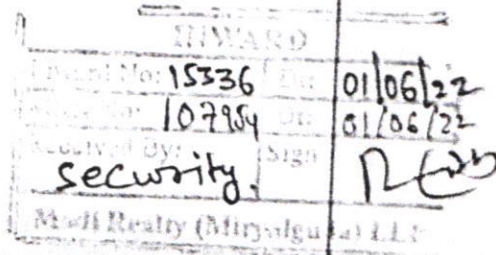 INWARD
Inward No: 15336 Dt: 01/06/22
107954 Dt: 01/06/22
Received By: Sign
security.
Modi Realty (Miryalguda) LLP